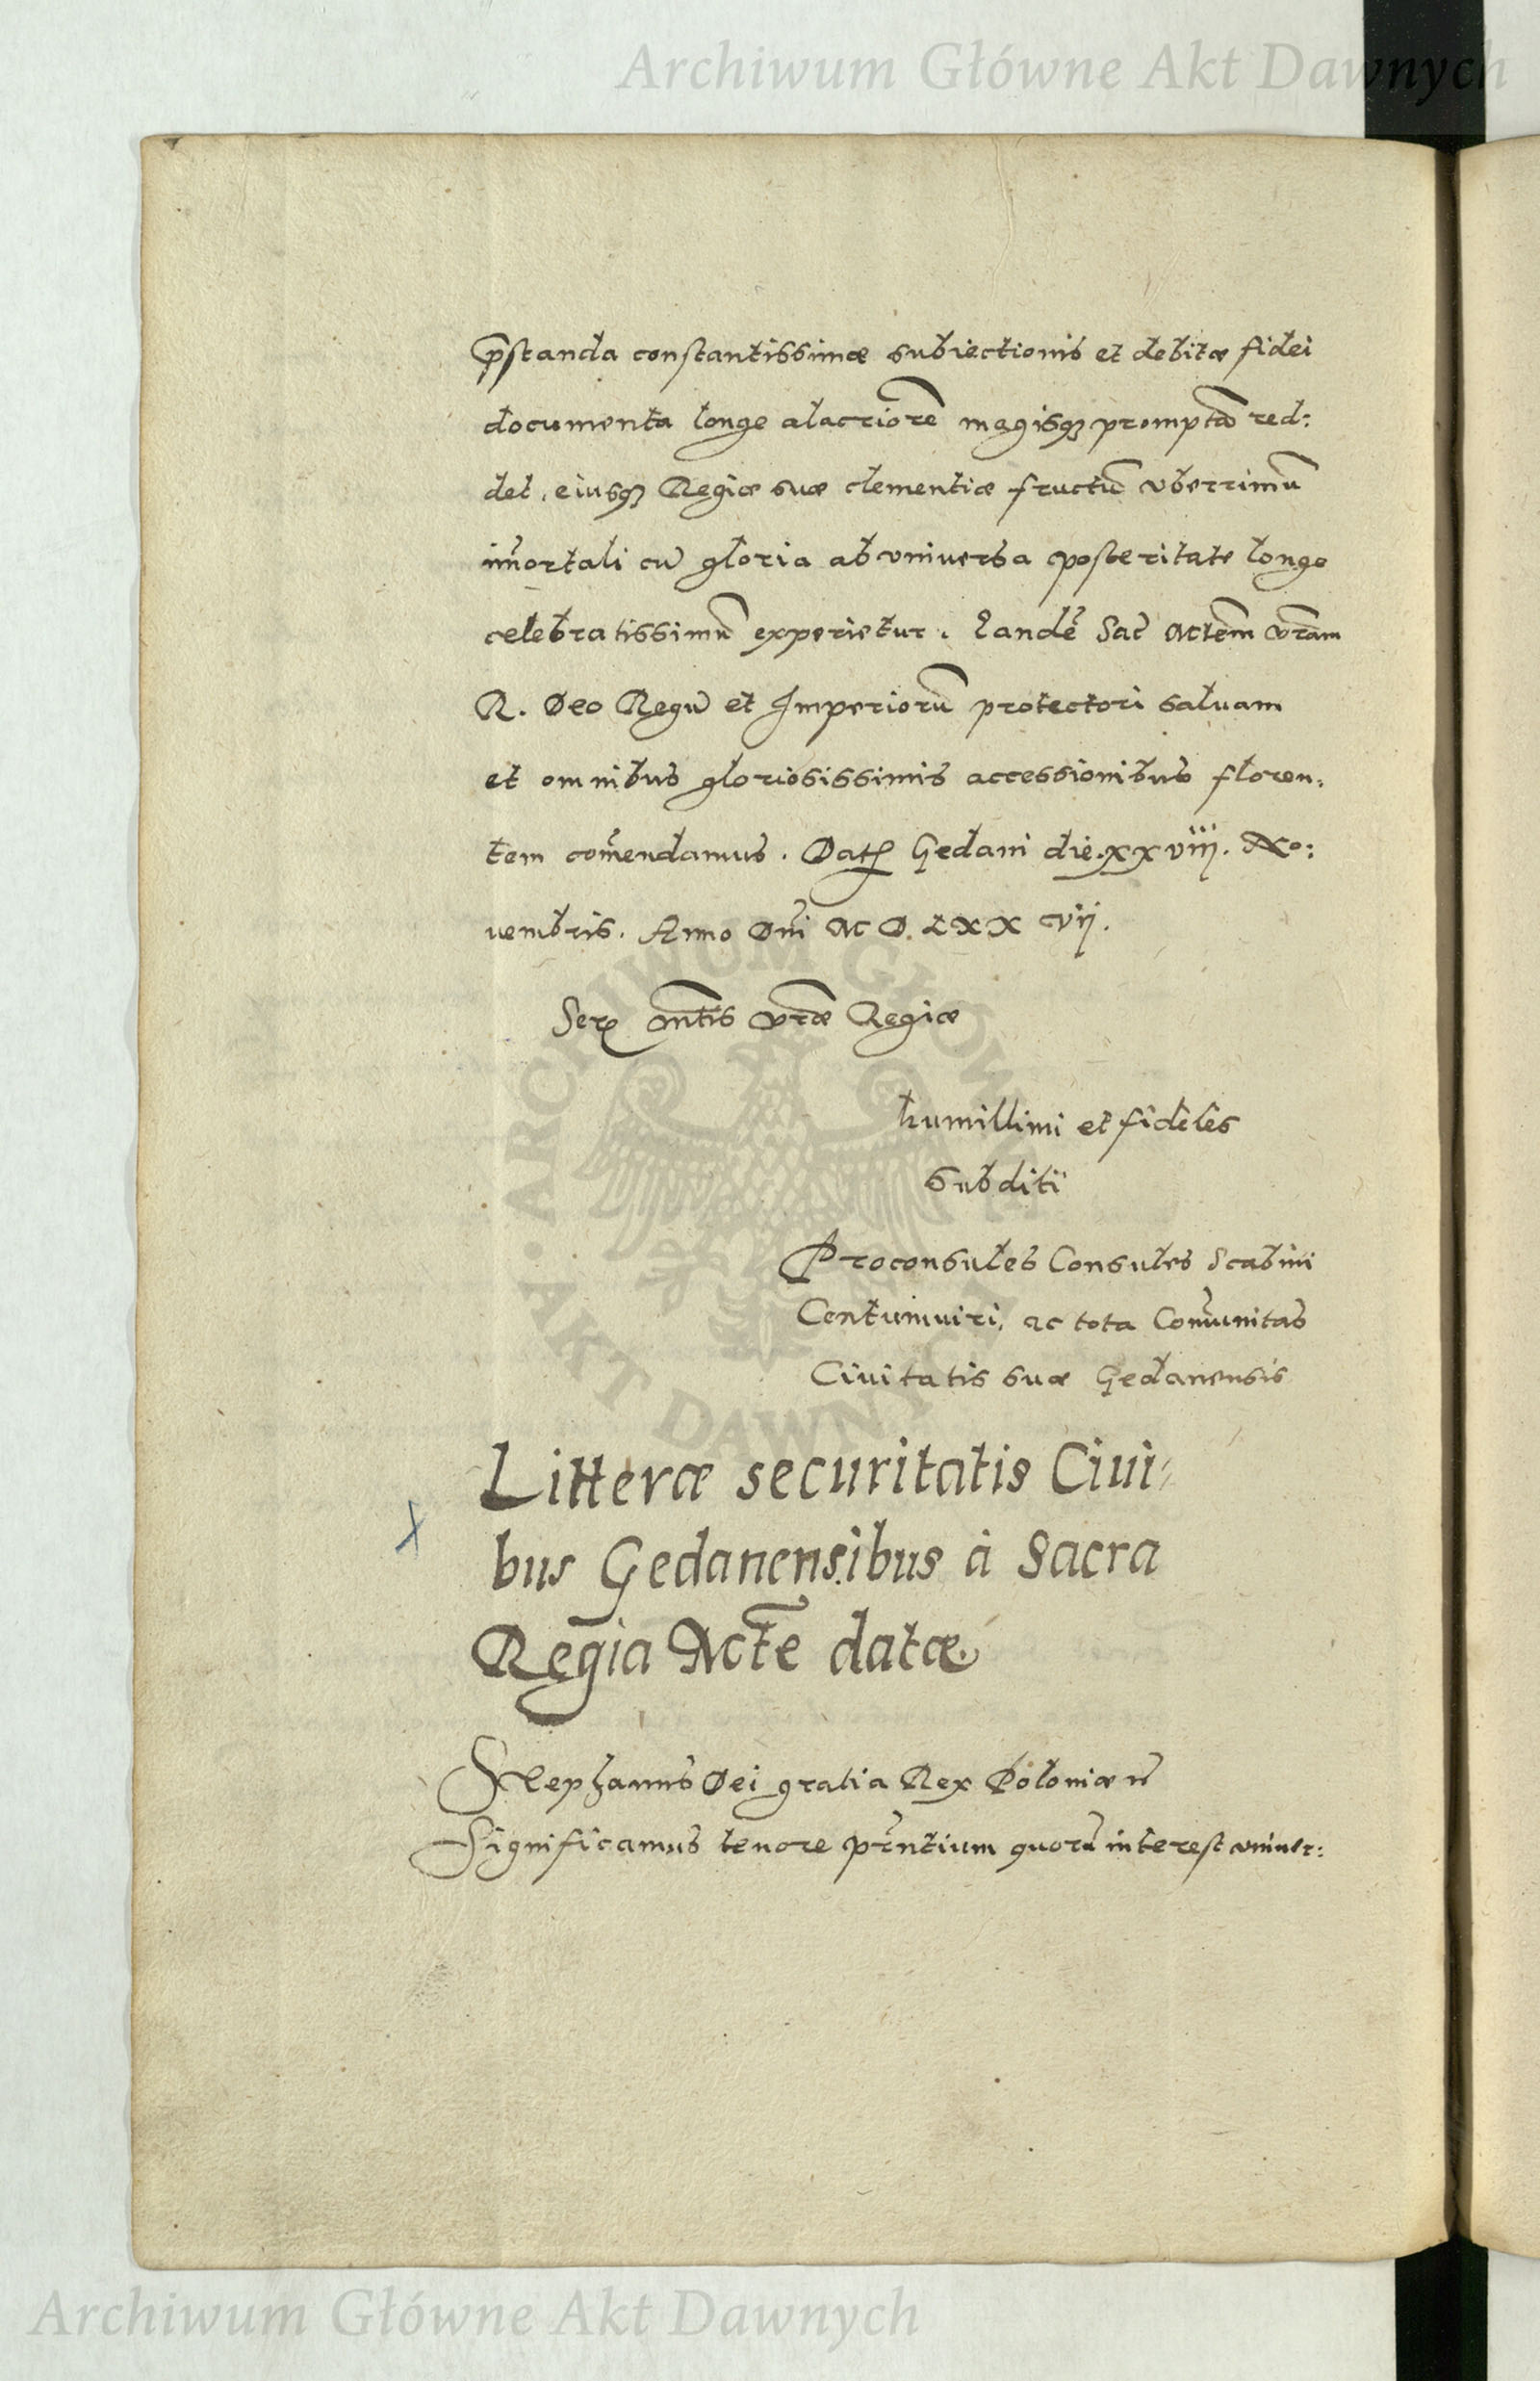 Archiwum Główne Akt Dawnych
p̄standa constantissimæ subiectionis et debitæ fidei
documenta longe alacriorē magisq₃ promptā red:
det, eiusq₃ Regiæ suæ clementiæ fructū vberrimū
im̄ortali cū gloria ab vniuersa posteritate longe
celebratissimū experietur. Eandē Sac̄ Mtem̄ vram̄
R. Deo Regū et Imperiorū protectori saluam
et omnibus gloriosissimis accessionibus floren:
tem com̄endamus. Datꝭ Gedani die.xxviij. No:
uembris. Anno Dn̄i M D. LXX vij.
Ser mt̄is vrǣ Regiæ
humillimi et fideles
subditi
Proconsules Consules Scabini
Centumuiri, ac tota Com̄unitas
Ciuitatis suæ Gedanensis
Litteræ securitatis Ciui-
bus Gedanensibus à Sacra
Regia Mtē datæ.
Stephanus Dei gratia Rex Poloniæ
Significamus tenore pn̄tium quorū interest vniuer:
ARCHIWUM GŁÓWNE • AKT DAWNYCH •
Archiwum Główne Akt Dawnych